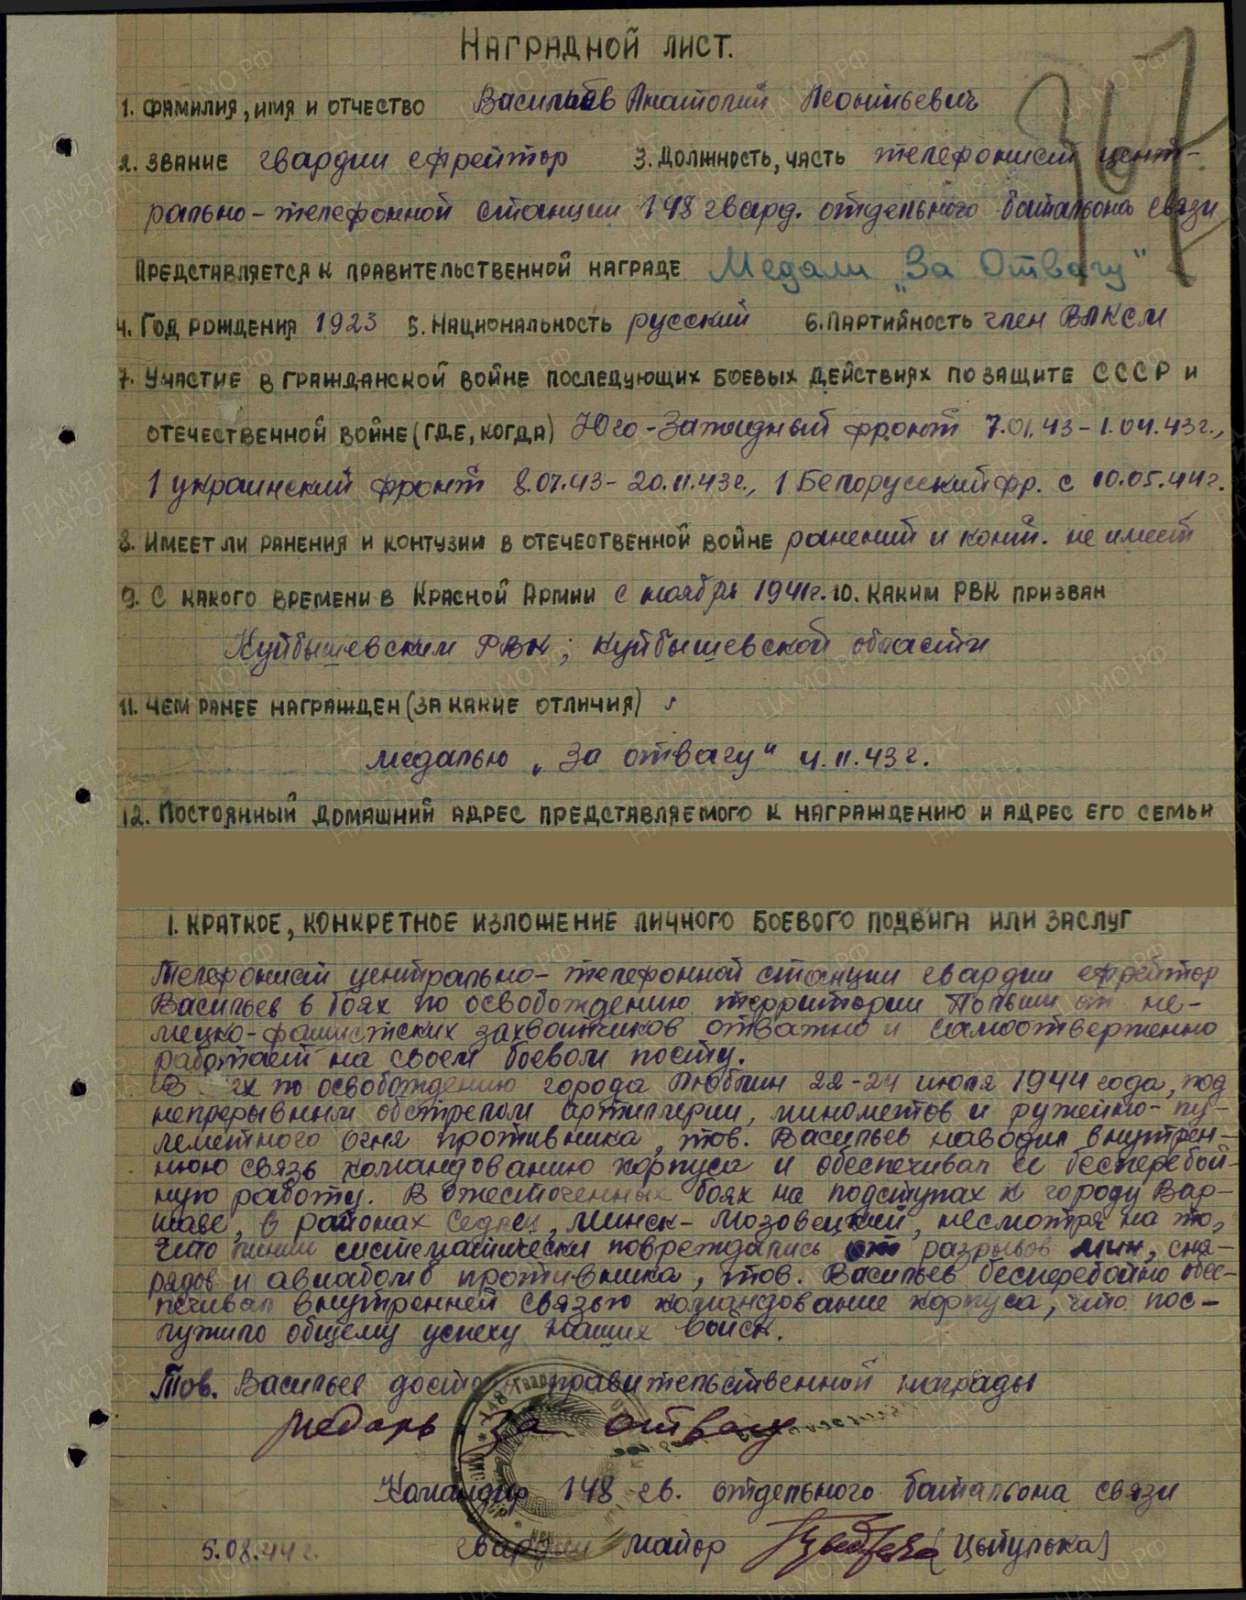 НАГРАДНОЙ ЛИСТ.
1. ФАМИЛИЯ, ИМЯ И ОТЧЕСТВО Васильев Анатолий Леонтьевич
2. ЗВАНИЕ гвардии ефрейтор 3. ДОЛЖНОСТЬ, ЧАСТЬ телефонист цент-
рально-телефонной станции 148 гвард. отдельного батальона связи
ПРЕДСТАВЛЯЕТСЯ К ПРАВИТЕЛЬСТВЕННОЙ НАГРАДЕ Медали „За Отвагу"
4. ГОД РОЖДЕНИЯ 1923 5. НАЦИОНАЛЬНОСТЬ русский 6. ПАРТИЙНОСТЬ член ВЛКСМ
7. УЧАСТИЕ В ГРАЖДАНСКОЙ ВОЙНЕ ПОСЛЕДУЮЩИХ БОЕВЫХ ДЕЙСТВИЯХ ПО ЗАЩИТЕ СССР И
ОТЕЧЕСТВЕННОЙ ВОЙНЕ (ГДЕ, КОГДА) Юго-Западный фронт 7.01.43-1.04.43г.,
1 украинский фронт 8.07.43-20.11.43г., 1 Белорусский фр. с 10.05.44г.
8. ИМЕЕТ ЛИ РАНЕНИЯ И КОНТУЗИИ В ОТЕЧЕСТВЕННОЙ ВОЙНЕ ранений и конт. не имеет
9. С КАКОГО ВРЕМЕНИ В КРАСНОЙ АРМИИ с ноябрь 1941г. 10. КАКИМ РВК ПРИЗВАН
Куйбышевским РВК; Куйбышевской области
11. ЧЕМ РАНЕЕ НАГРАЖДЕН (ЗА КАКИЕ ОТЛИЧИЯ)
медалью „За отвагу" 4.11.43г.
12. ПОСТОЯННЫЙ ДОМАШНИЙ АДРЕС ПРЕДСТАВЛЯЕМОГО К НАГРАЖДЕНИЮ И АДРЕС ЕГО СЕМЬИ
1. КРАТКОЕ, КОНКРЕТНОЕ ИЗЛОЖЕНИЕ ЛИЧНОГО БОЕВОГО ПОДВИГА ИЛИ ЗАСЛУГ
Телефонист центрально-телефонной станции гвардии ефрейтор
Васильев в боях по освобождению территории Польши от не-
мецко-фашистских захватчиков отважно и самоотверженно
работает на своем боевом посту.
В по освобождению города Люблин 22-24 июля 1944 года, под
непрерывным обстрелом артиллерии, минометов и ружейно-пу-
леметного огня противника, тов. Васильев наводил внутрен-
нюю связь командованию корпуса и обеспечивал ее бесперебой-
ную работу. В ожесточенных боях на подступах к городу Вар-
шаве, в районах Седлец, Минск-Мозовецкий, несмотря на то,
что линии систематически повреждались от разрывов мин, сна-
рядов и авиабомб противника, тов. Васильев бесперебойно обес-
печивал внутренней связью командование корпуса, что пос-
лужило общему успеху наших войск.
Тов. Васильев правительственной награды
медаль За отвагу
Командир 148 гв. отдельного батальона связи
5.08.44г. гвардии майор (Цыпулька)